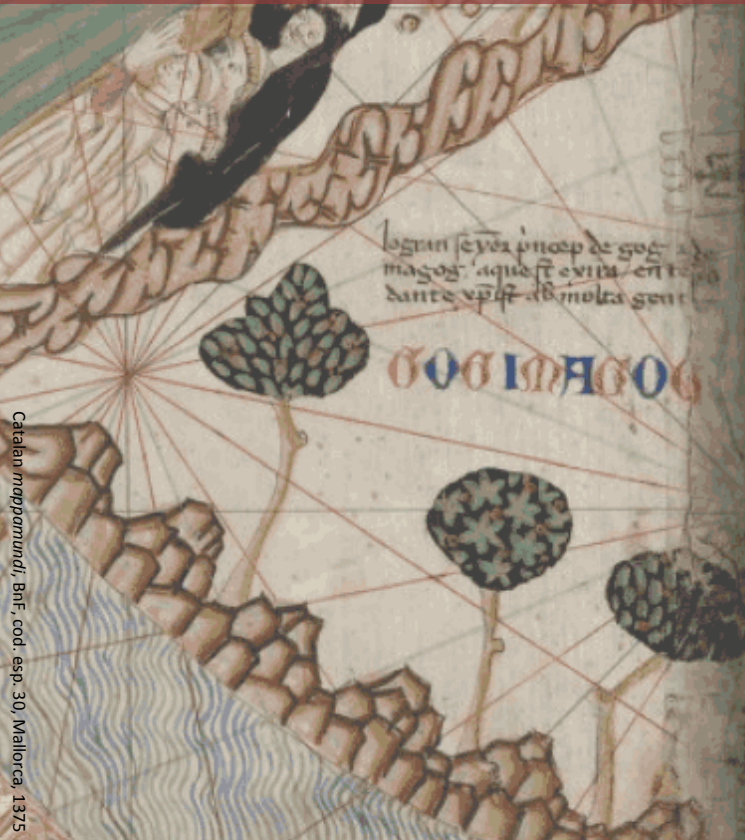 lo gran seyor princep de gog e de
magog aquest exira en te
dant e xpist ab molta gent
GOG IMAGOG
Catalan mappamundi, BnF, cod. esp. 30, Mallorca, 1375